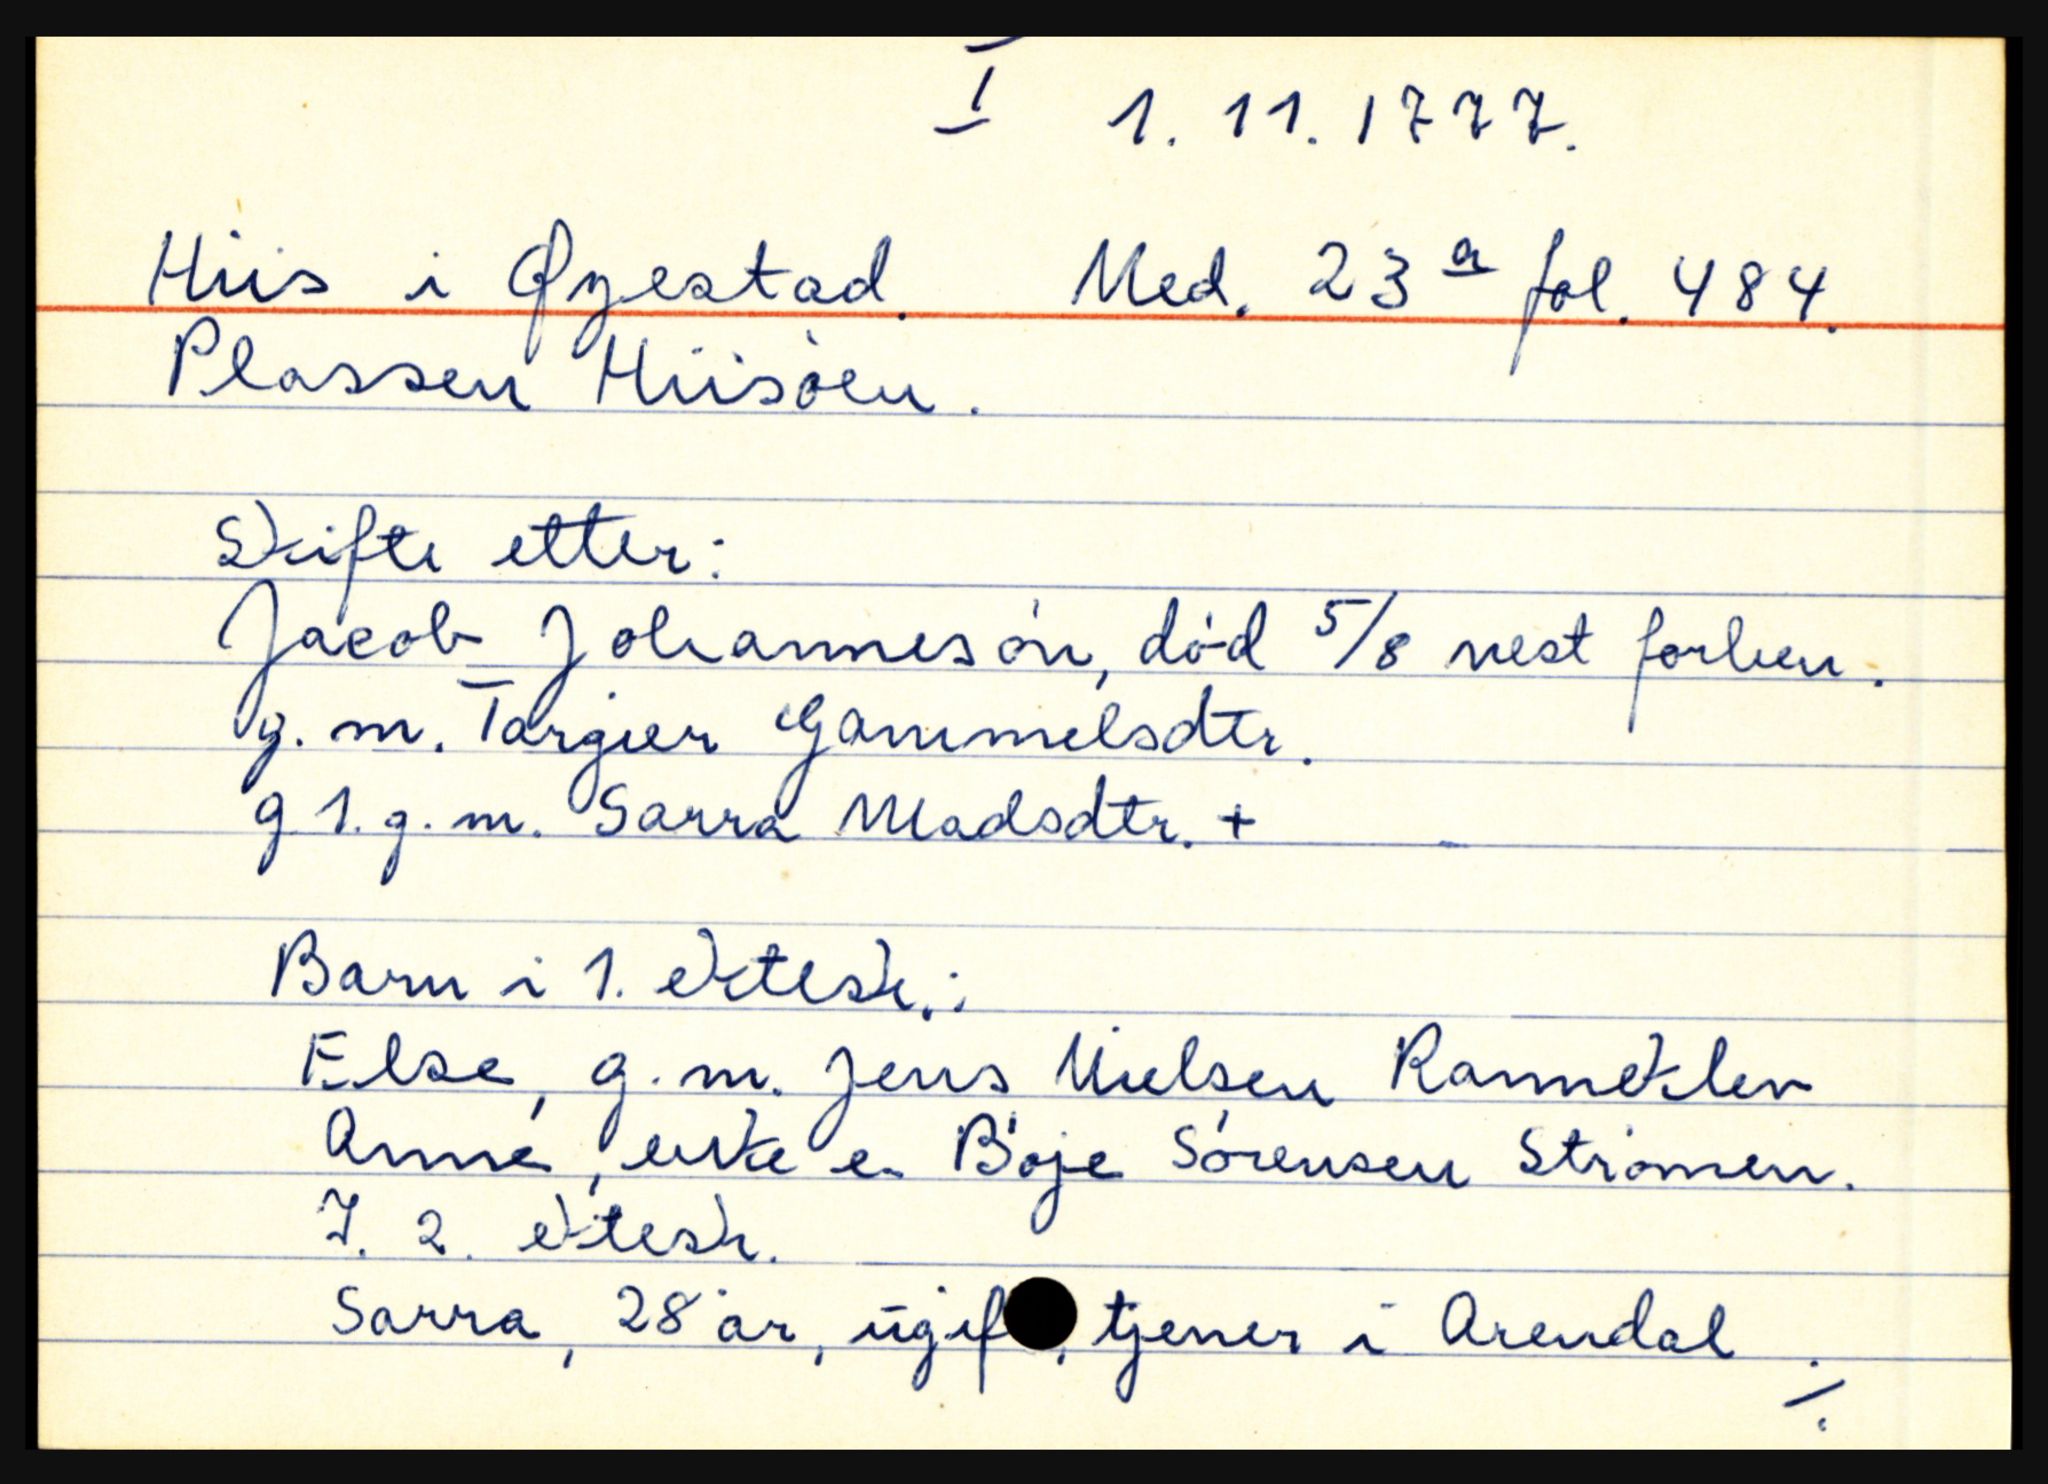 I 1. 11. 1777.
Hiis i Øyestad. Med. 23 a fol. 484.
Plassen Hiisøen.
Skifte etter:
Jacob Johannesøn, død 5/8 nest forben.
g. m. Targier Gammelsdtr.
g 1. g. m. Sarra Madsdtr. +
Barn i 1. ektesk.:
Else, g. m. Jens Nielsen Ranneklev
Anne, enke e. Bøje Sørensen Strømen.
I. 2. ektesk.
Sarra, 28 år, ugif, tjener i Arendal.